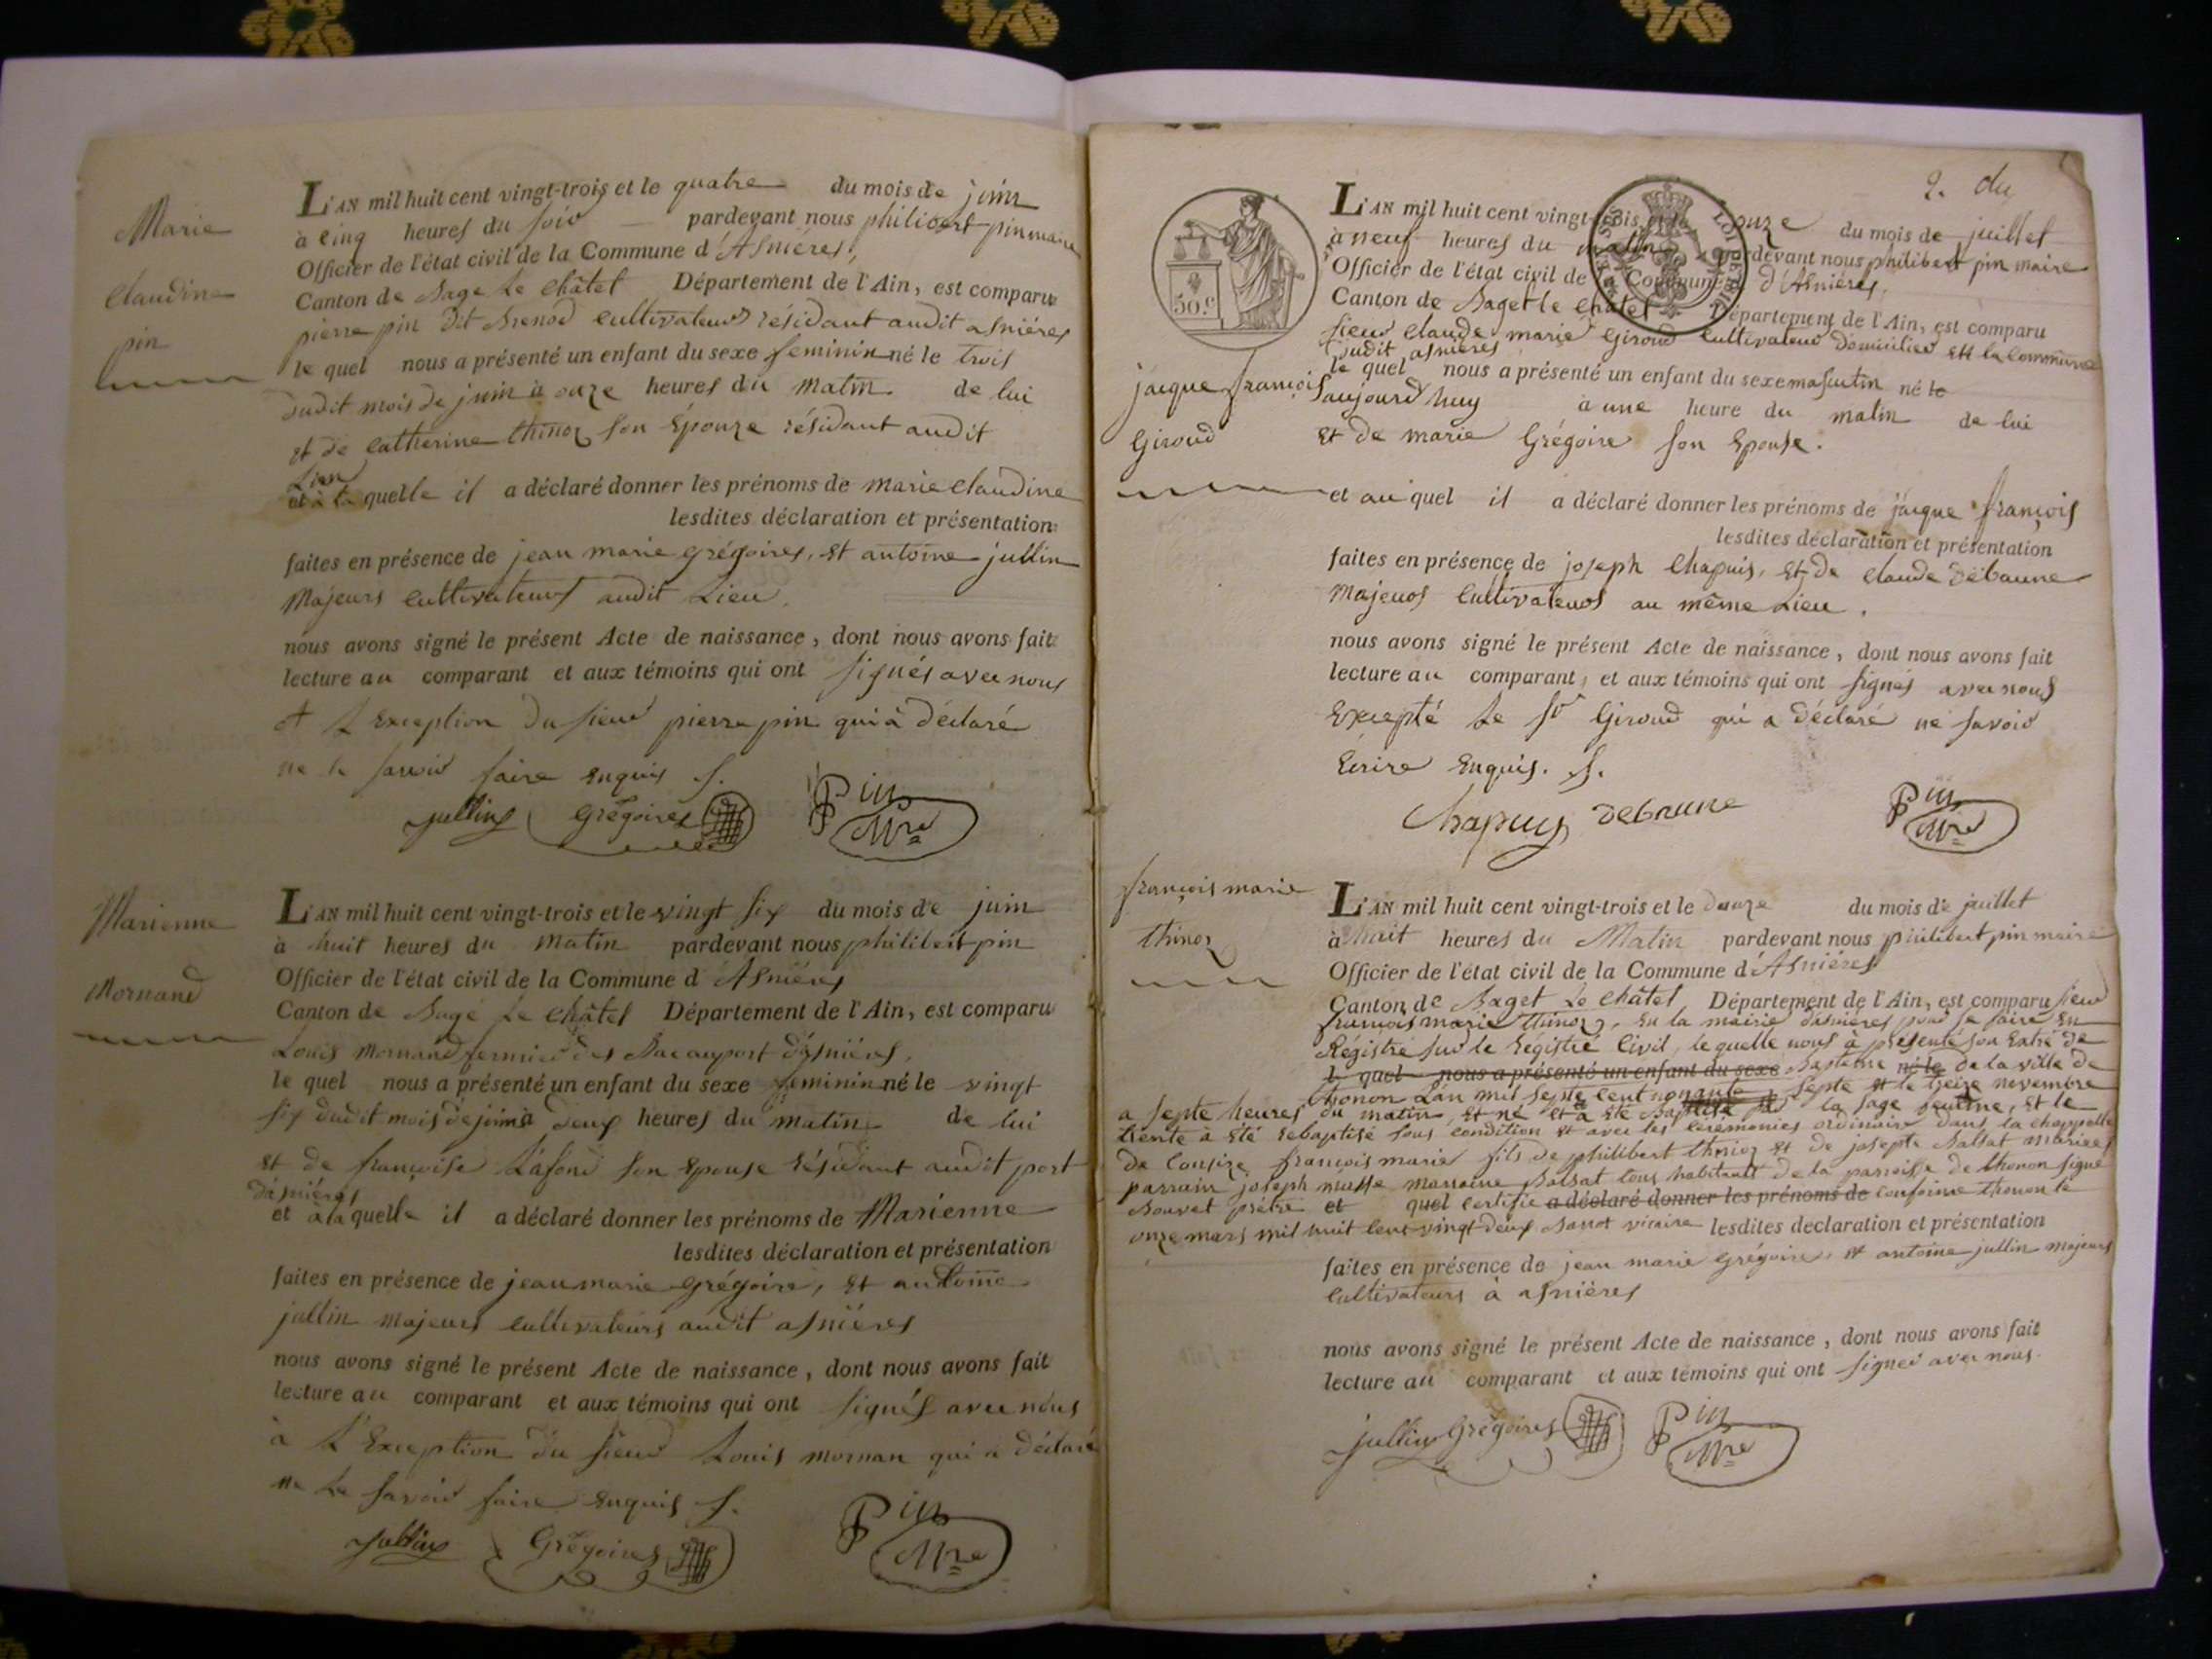 Marie
Claudine
pin
L'AN mil huit cent vingt-trois et le quatre du mois de juin
à cinq heures du soir pardevant nous philibert pin maire
Officier de l'état civil de la Commune d'Asniéres,
Canton de Bage Le Châtel Département de l'Ain, est comparu
pierre pin dit Brenod cultivateur résidant audit asniéres
le quel nous a présenté un enfant du sexe feminin né le trois
dudit mois de juin à onze heures du matin de lui
et de Catherine thinoz son Épouze résidant audit
Lieu
et à la quelle il a déclaré donner les prénoms de marie Claudine
lesdites déclaration et présentation
faites en présence de jean marie grégoires, et antoine jullin
Majeurs cultivateurs audit Lieu.
nous avons signé le présent Acte de naissance, dont nous avons fait
lecture au comparant et aux témoins qui ont signés avec nous
à L'exception du sieur pierre pin qui à déclaré
ne le savoir faire enquis S.
jullin Grégoires Pin
Mre
Marienne
Mornand
L'AN mil huit cent vingt-trois et le vingt six du mois de juin
à huit heures du matin pardevant nous philibert pin
Officier de l'état civil de la Commune d'Asniéres
Canton de Bagé Le Châtel Département de l'Ain, est comparu
Louis Mornand fermier des Bac au port d'asniéres.
le quel nous a présenté un enfant du sexe feminin né le vingt
six dudit mois de juin à deux heures du matin de lui
et de françoise Lafond son Epouse résidant audit port
d'asniéres
et à la quelle il a déclaré donner les prénoms de Marienne
lesdites déclaration et présentation
faites en présence de jean marie grégoire, et antoine
jullin majeurs cultivateurs audit asniéres
nous avons signé le présent Acte de naissance, dont nous avons fait
lecture au comparant et aux témoins qui ont signés avec nous
à L'Exception du sieur Louis mornan qui a déclaré
ne Le savoir faire enquis S.
Jullin Grégoires Pin
Mre
2. du
50.c
L'AN mil huit cent vingt-trois et le onze du mois de juillet
à neuf heures du matin pardevant nous philibert pin maire
Officier de l'état civil de la Commune d'Asniéres,
Canton de Baget le Châtel Département de l'Ain, est comparu
sieur Claude marie Giroud cultivateur domicilier en la commune
dudit asniéres
le quel nous a présenté un enfant du sexe masculin né le
jacque françois
Giroud
aujourd'huy à une heure du matin de lui
et de marie Grégoire son Epouse.
et au quel il a déclaré donner les prénoms de jacque françois
lesdites déclaration et présentation
faites en présence de joseph Chapuis, et de Claude debaune
Majeurs Cultivateurs au même Lieu.
nous avons signé le présent Acte de naissance, dont nous avons fait
lecture au comparant, et aux témoins qui ont signés avec nous
Excepté Le Sr Giroud qui a déclaré ne savoir
Ecrire Enquis. S.
Chapuy debaune Pin
Mre
françois marie
thinoz
L'AN mil huit cent vingt-trois et le douze du mois de juillet
à huit heures du Matin pardevant nous philibert pin maire
Officier de l'état civil de la Commune d'Asniéres
Canton de Baget Le Châtel, Département de l'Ain, est comparu sieur
françois marie thinoz, en la mairie d'asniéres pour se faire en
Régistré sur le régistre Civil, lequelle nous à présenté son Extré de
le quel nous a présenté un enfant du sexe Baptême né le de la ville de
thonon L'an mil septe cent nonante septe et le treize novembre
a septe heures du matin, est né et a été baptisé par la sage femme, et le
trente à été rebaptisé sous condition et avec les cérémonies ordinaire dans la chappelle
de françois marie fils de philibert thnioz et de josepte Balsat mariées
parrain joseph marraine Balsat tous habitants de la paroisse de thonon signé
Bouvet prêtre et quel certifie a déclaré donner les prénoms de conforme thonon le
onze mars mil huit cent vingt deux vicaire lesdites déclaration et présentation
faites en présence de jean marie grégoire, et antoine jullin majeurs
Cultivateurs à asniéres
nous avons signé le présent Acte de naissance, dont nous avons fait
lecture au comparant et aux témoins qui ont signer avec nous.
jullin Grégoires Pin
Mre